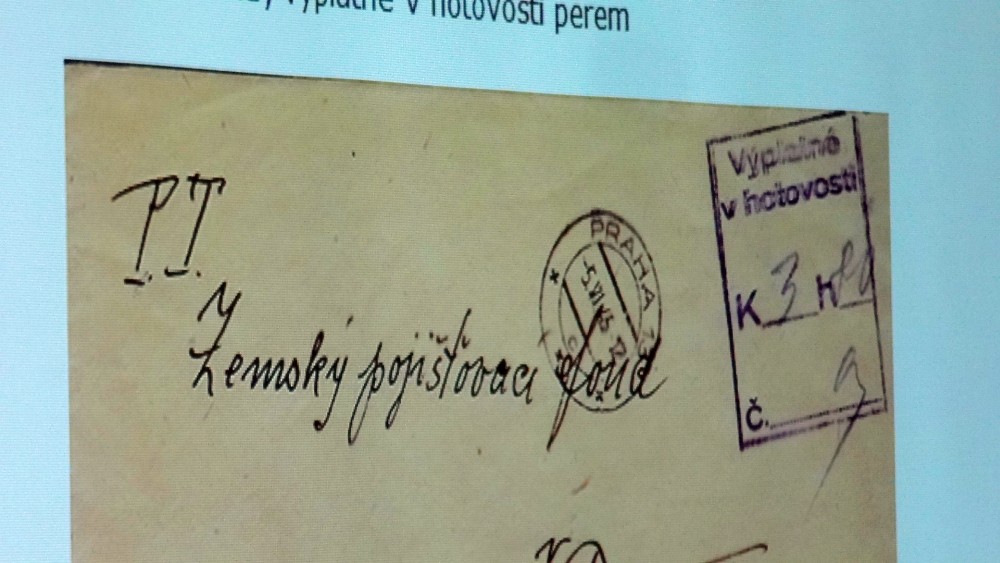 výplatné v hotovosti perem
P.T.
Zemský pojišťovací fond
PRAHA
Výplatné
v hotovosti
K 3 h
Č.